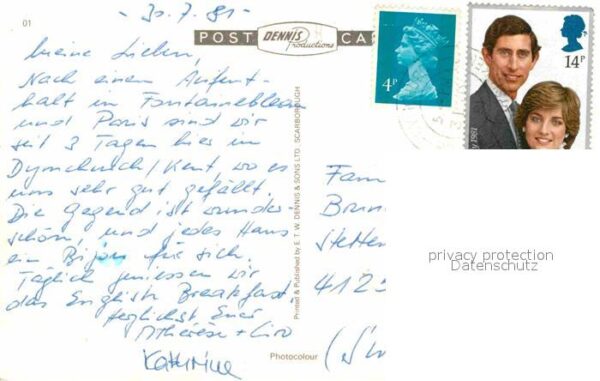 01
- 30.7.81 -
POST CA
DENNIS
Productions
Meine Lieben,
Nach einem Aufent-
halt in Fontainebleau
und Paris sind wir
seit 3 Tagen hier in
Dymchurch/Kent, wo es
uns sehr gut gefällt.
Die Gegend ist wunder-
schön, und jedes Haus
ein Bijou für sich.
Täglich geniessen wir
das English Breakfast.
Herzlichst Euer
Thérèse + Ciro
Kathrine
Printed & Published by E. T. W. DENNIS & SONS LTD. SCARBOROUGH
Photocolour
4P
14P
Fam
Brun
Stetten
4125
privacy protection
Datenschutz